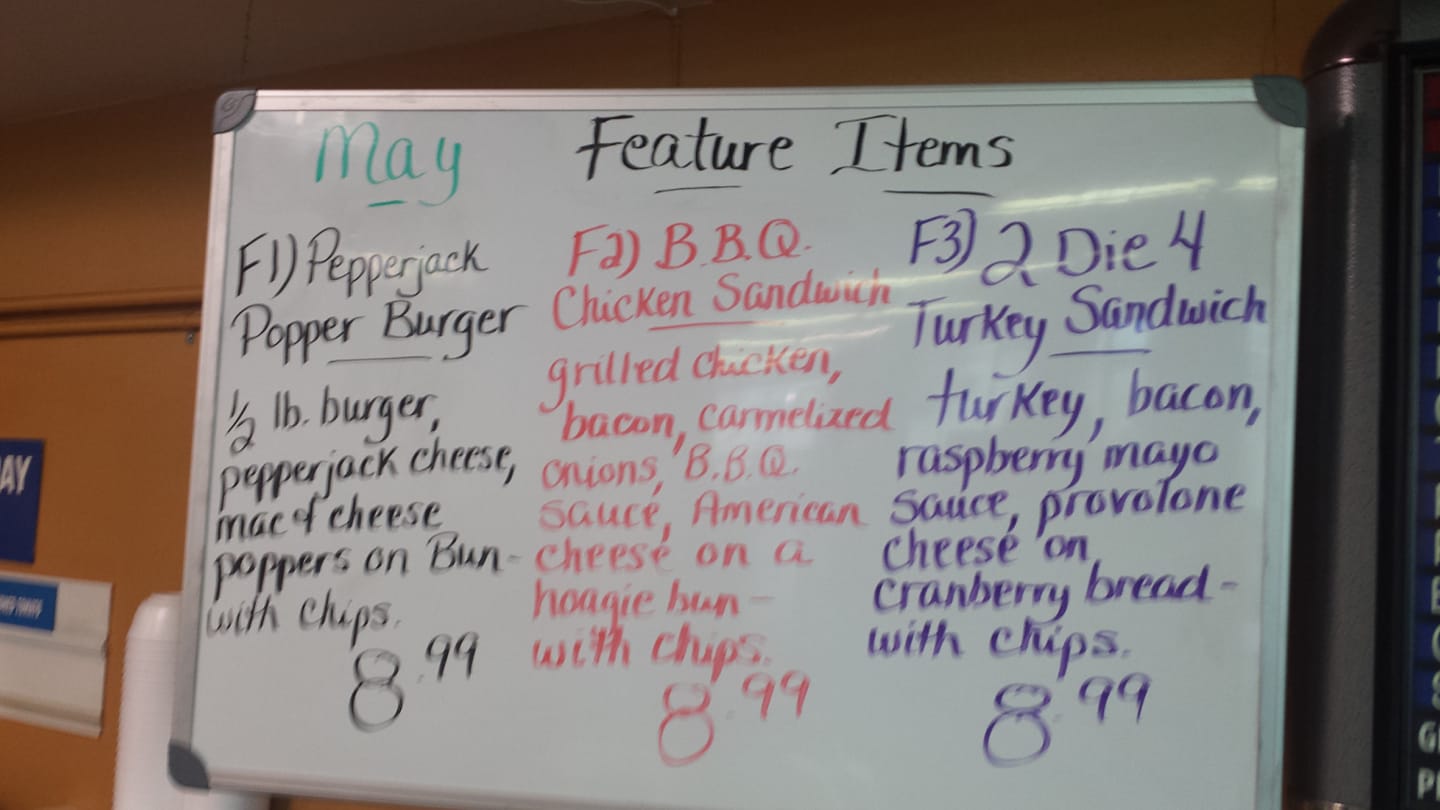 May Feature Items
F1) Pepperjack
Popper Burger
1/2 lb. burger,
pepperjack cheese,
mac & cheese
poppers on Bun-
with chips.
8.99
F2) B.B.Q.
Chicken Sandwich
grilled chicken,
bacon, carmelized
onions, B.B.Q.
sauce, American
cheese on a
hoagie bun-
with chips.
8.99
F3) 2 Die 4
Turkey Sandwich
turkey, bacon,
raspberry mayo
sauce, provolone
cheese on
cranberry bread-
with chips.
8.99
AY